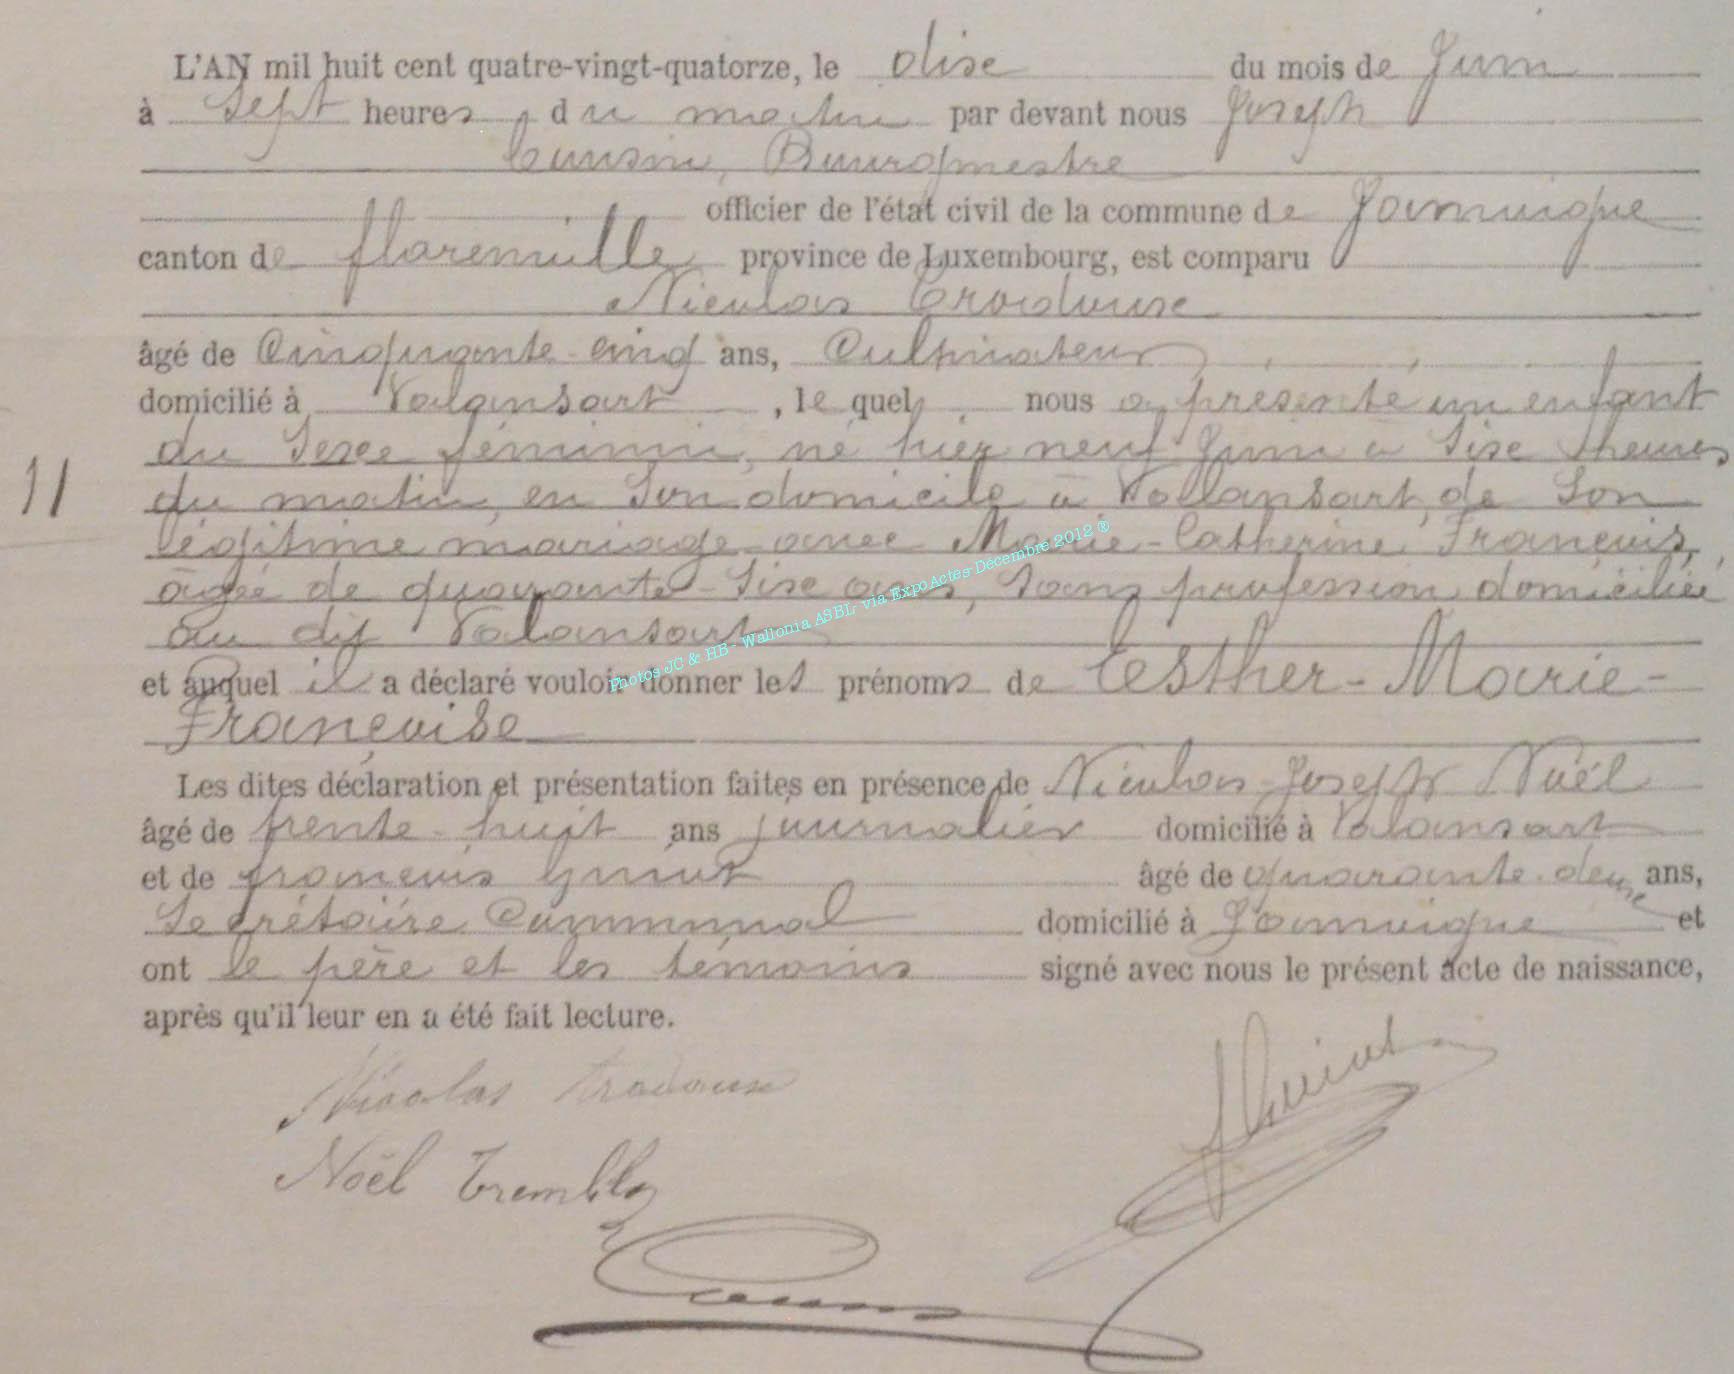 L'AN mil huit cent quatre-vingt-quatorze, le dise du mois de Juin
à Sept heures du matin par devant nous Joseph
Bourgmestre
officier de l'état civil de la commune de Jamoigne
canton de florenville province de Luxembourg, est comparu
Nicolas
âgé de Cinquante-cinq ans, Cultivateur
domicilié à Valansart, le quel nous a présenté un enfant
du Sexe féminin, né hier neuf Juin à Sise heures
du matin, en Son domicile à Vallansart, de Son
légitime mariage avec Marie-Catherine François,
âgée de quarante-Sise ans, Sans profession domiciliée
au dit Valansart
et auquel il a déclaré vouloir donner les prénoms de Esther-Marie-
Françoise
Les dites déclaration et présentation faites en présence de Nicolas-Joseph Noël
âgé de trente-huit ans journalier domicilié à Valansart
et de françois âgé de quarante-deux ans,
Secrétaire Communal domicilié à Jamoigne et
ont le père et les témoins signé avec nous le présent acte de naissance,
après qu'il leur en a été fait lecture.
11
Photos JC & HB - Wallonia ASBL via ExpoActes-Décembre 2012 ®
Nicolas
Noël Trembloy